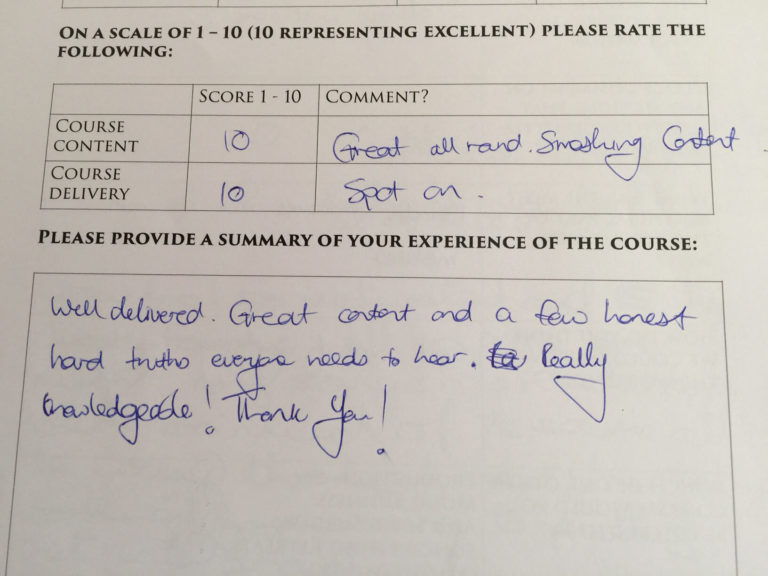 ON A SCALE OF 1 – 10 (10 REPRESENTING EXCELLENT) PLEASE RATE THE
FOLLOWING:
SCORE 1 - 10 COMMENT?
COURSE CONTENT 10 Great all round. Smashing Content
COURSE DELIVERY 10 Spot on.
PLEASE PROVIDE A SUMMARY OF YOUR EXPERIENCE OF THE COURSE:
Well delivered. Great content and a few honest
hard truths everyone needs to hear. Really
knowledgeable! Thank You!